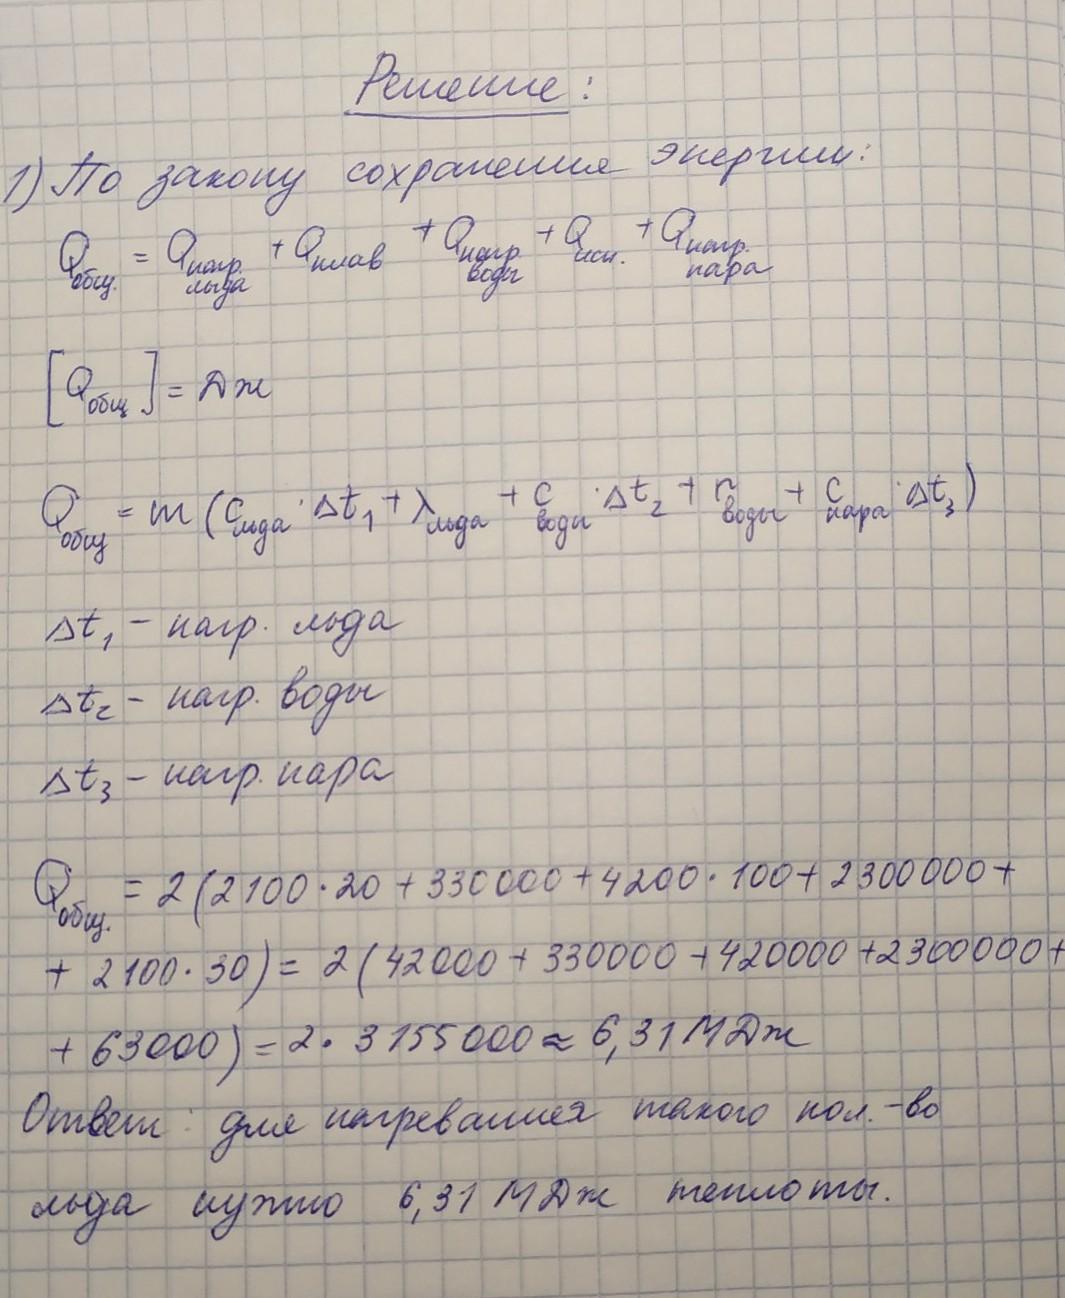 Решение:
1) По закону сохранения энергии:
Qобщ. = Qнагр. льда + Qплав + Qнагр. воды + Qисп. + Qнагр. пара
[Qобщ] = Дж
Qобщ = m (cльда · Δt₁ + λльда + cводы · Δt₂ + rводы + cпара · Δt₃)
Δt₁ – нагр. льда
Δt₂ – нагр. воды
Δt₃ – нагр. пара
Qобщ. = 2 (2100 · 20 + 330000 + 4200 · 100 + 2300000 +
+ 2100 · 30) = 2 (42000 + 330000 + 420000 + 2300000 +
+ 63000) = 2 · 3155000 ≈ 6,31 МДж
Ответ: для нагревания такого кол.-во
льда нужно 6,31 МДж теплоты.